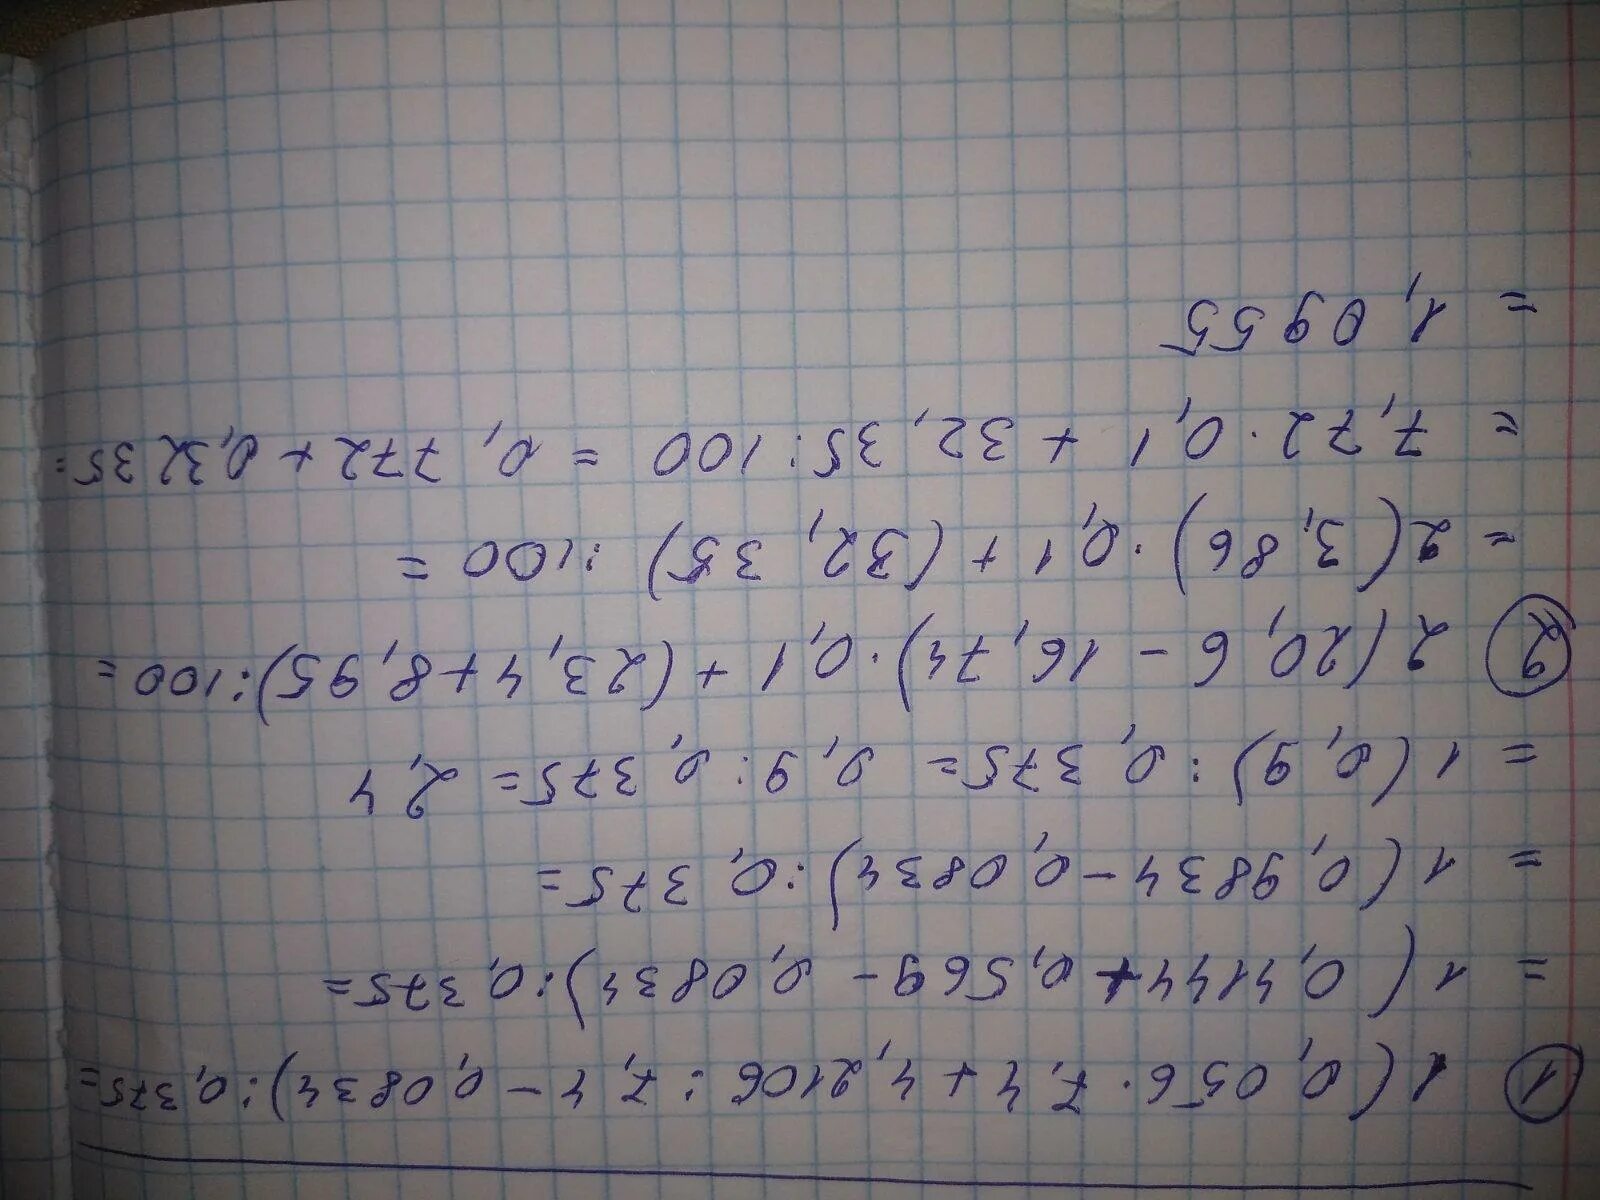 ① 1(0,056·7,4+4,2106:7,4-0,0834):0,375=
= 1(0,4144+0,569-0,0834):0,375=
= 1(0,9834-0,0834):0,375=
= 1(0,9):0,375= 0,9:0,375= 2,4
② 2(20,6-16,74)·0,1+(23,4+8,95):100=
= 2(3,86)·0,1+(32,35):100=
= 7,72·0,1+32,35:100=0,772+0,3235=
= 1,0955